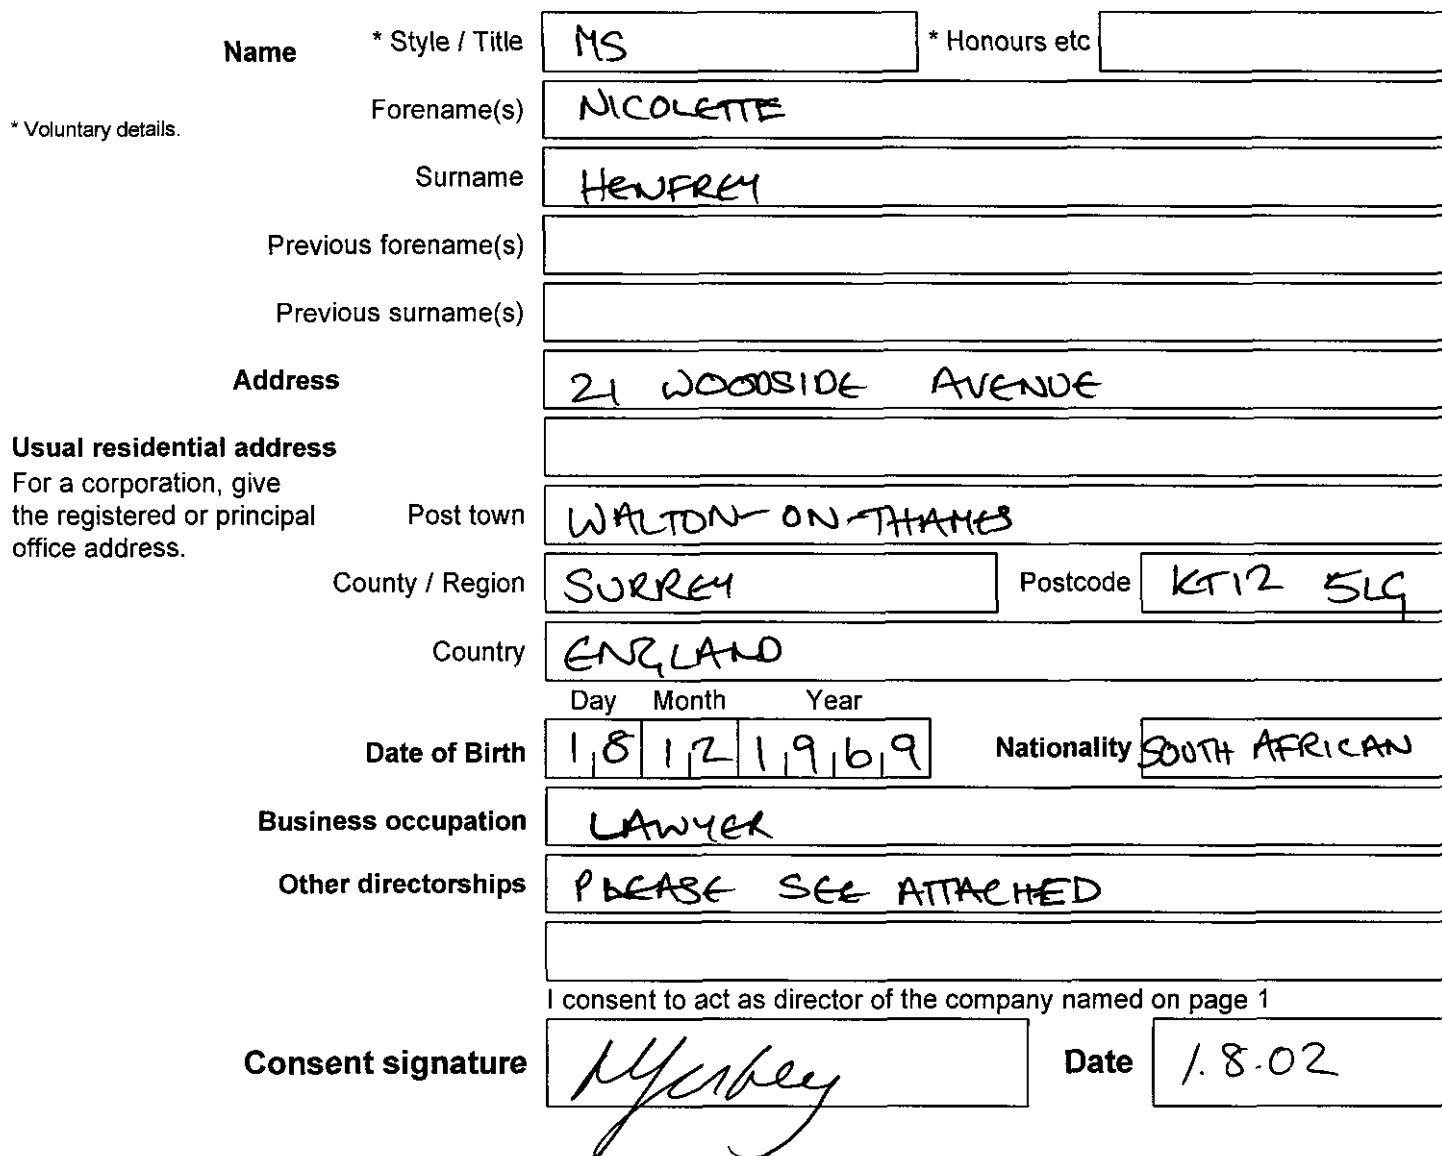 Name * Style / Title MS * Honours etc
* Voluntary details. Forename(s) NICOLETTE
Surname HENFREY
Previous forename(s)
Previous surname(s)
Address 21 WOODSIDE AVENUE
Usual residential address
For a corporation, give
the registered or principal
office address.
Post town WALTON-ON-THAMES
County / Region SURREY Postcode KT12 5LG
Country ENGLAND
Day Month Year
Date of Birth 18 12 1969 Nationality SOUTH AFRICAN
Business occupation LAWYER
Other directorships PLEASE SEE ATTACHED
I consent to act as director of the company named on page 1
Consent signature Date 1.8.02